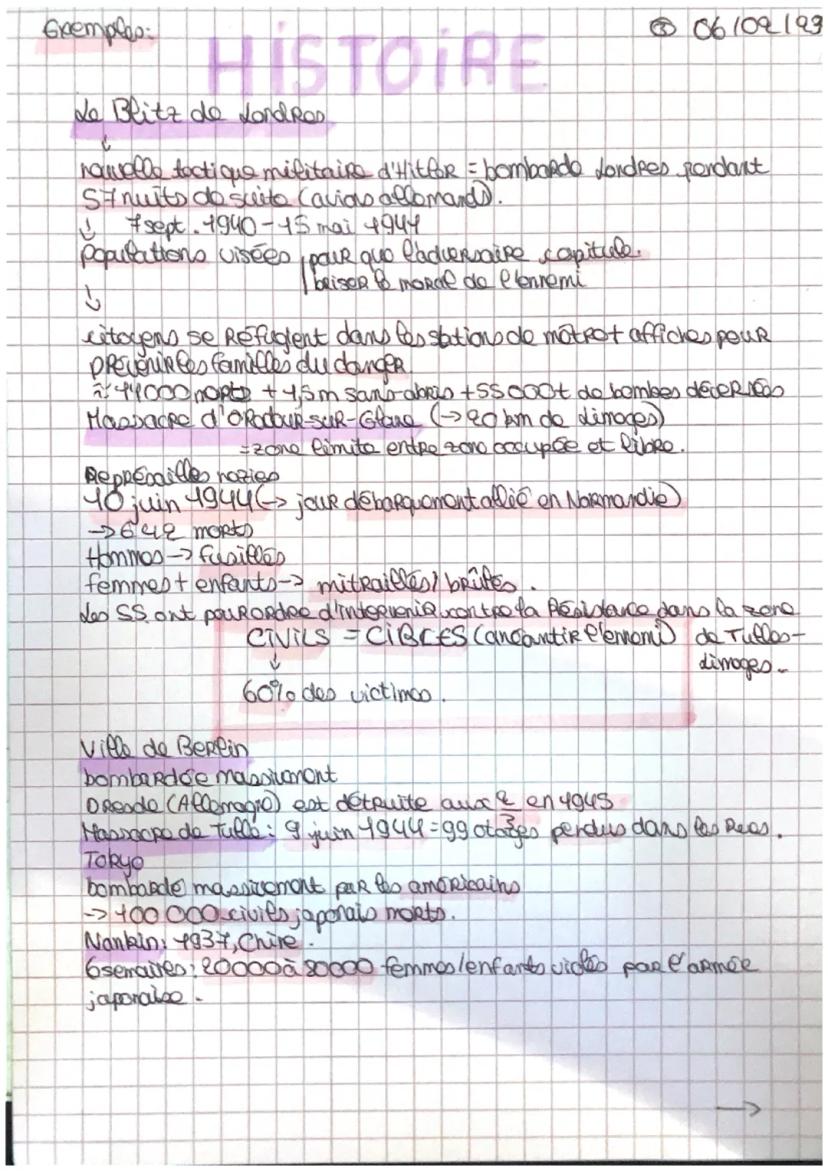 Exemples:
③ 06/02/23
HISTOIRE
Le Blitz de Londres
↓
nouvelle tactique militaire d'Hitler = bombarde Londres pendant
57 nuits de suite (avions allemands).
↓ 7 sept. 1940 - 15 mai 1941
Populations visées / pour que l'adversaire capitule.
briser le moral de l'ennemi
↓
citoyens se réfugient dans les stations de métro + affiches pour
prévenir les familles du danger
≈ 44000 morts + 1,5m sans-abris + 55 000t de bombes déversées
Massacre d'Oradour-sur-Glane (→ 20 km de Limoges)
= zone limite entre zone occupée et libre.
Représailles nazies
10 juin 1944 (→ jour débarquement allié en Normandie)
→ 642 morts
Hommes → fusillés
femmes + enfants → mitraillés / brûlés.
Les SS ont pour ordre d'intervenir contre la Résistance dans la zone
CIVILS = CIBLES (anéantir l'ennemi) de Tulles-
↓ Limoges.
60% des victimes.
Ville de Berlin
bombardée massivement
Dresde (Allemagne) est détruite aux 2/3 en 1945
Massacre de Tulle: 9 juin 1944 = 99 otages pendus dans les rues.
Tokyo
bombardé massivement par les américains
→ 100 000 civils japonais morts.
Nankin: 1937, Chine.
6 semaines: 20000 à 80000 femmes/enfants violés par l'armée
japonaise.
→